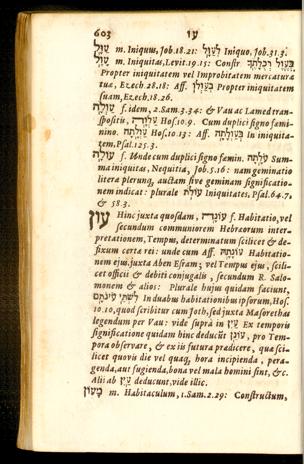 603 עו
עַוָּל m. Iniquus, Job.18.21: לְעַוָּל Iniquo, Job.31.3.
עָוֶל m. Iniquitas, Levit.19.15: Constr
Propter iniquitatem vel Improbitatem mercaturæ
tuæ, Ezech.28.18: Aff. Propter iniquitatem
suam, Ezech.18.26.
עַוְלָה f. idem, 2. Sam.3.34: & Vau ac Lamed tran-
spositis, Hos.10.9. Cum duplici signo fæmi-
nino. Hos.10.13: Aff. In iniquita-
tem, Psal.125.3.
עוֹלָה f. Unde cum duplici signo fæmin. Sum-
ma iniquitas, Nequitia, Job.5.16: nam geminatio
literæ plerunq, auctam sive geminam significatio-
nem indicat: plurale Iniquitates, Psal.64.7.
& 58.3.
עון Hinc juxta quosdam, עוֹנָה f. Habitatio, vel
secundum communiorem Hebræorum inter-
pretationem, Tempus, determinatum scilicet & de-
fixum certæ rei: unde cum Aff. Habitatio-
nem ejus juxta Aben Esram; vel Tempus ejus, scili-
cet officii & debiti conjugalis, secundum R. Salo-
monem & alios: Plurale hujus quidam faciunt,
In duabus habitationibus ipsorum, Hos.
10.10, quod scribitur cum Joth, sed juxta Masorethas
legendum per Vau: vide supra in Ex temporis
significatione quidam hinc deducūt pro Tem-
pora observare, & ex iis futura prædicere, quasi sci-
licet quovis die vel quaq, hora incipienda, pera-
genda, aut fugienda, bona vel mala homini sint, &c.
Alii ab deducunt, vide illic.
מָעוֹן m. Habitaculum, 1. Sam.2.29: Constructum,